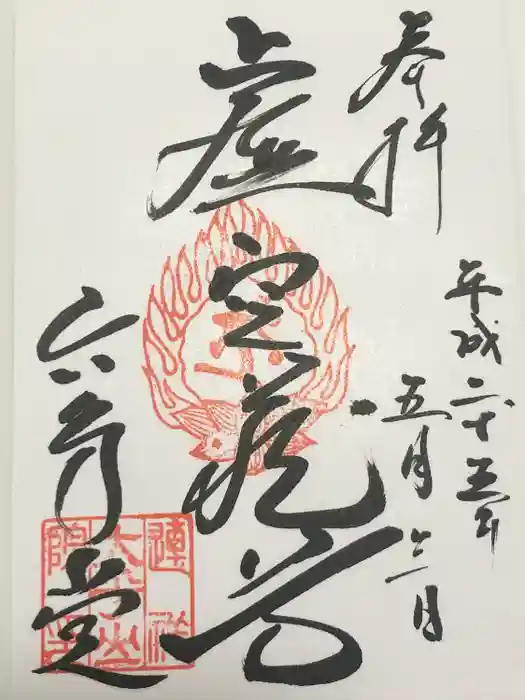 奉拝
平成二十五年
五月六日
虚空蔵
六角堂